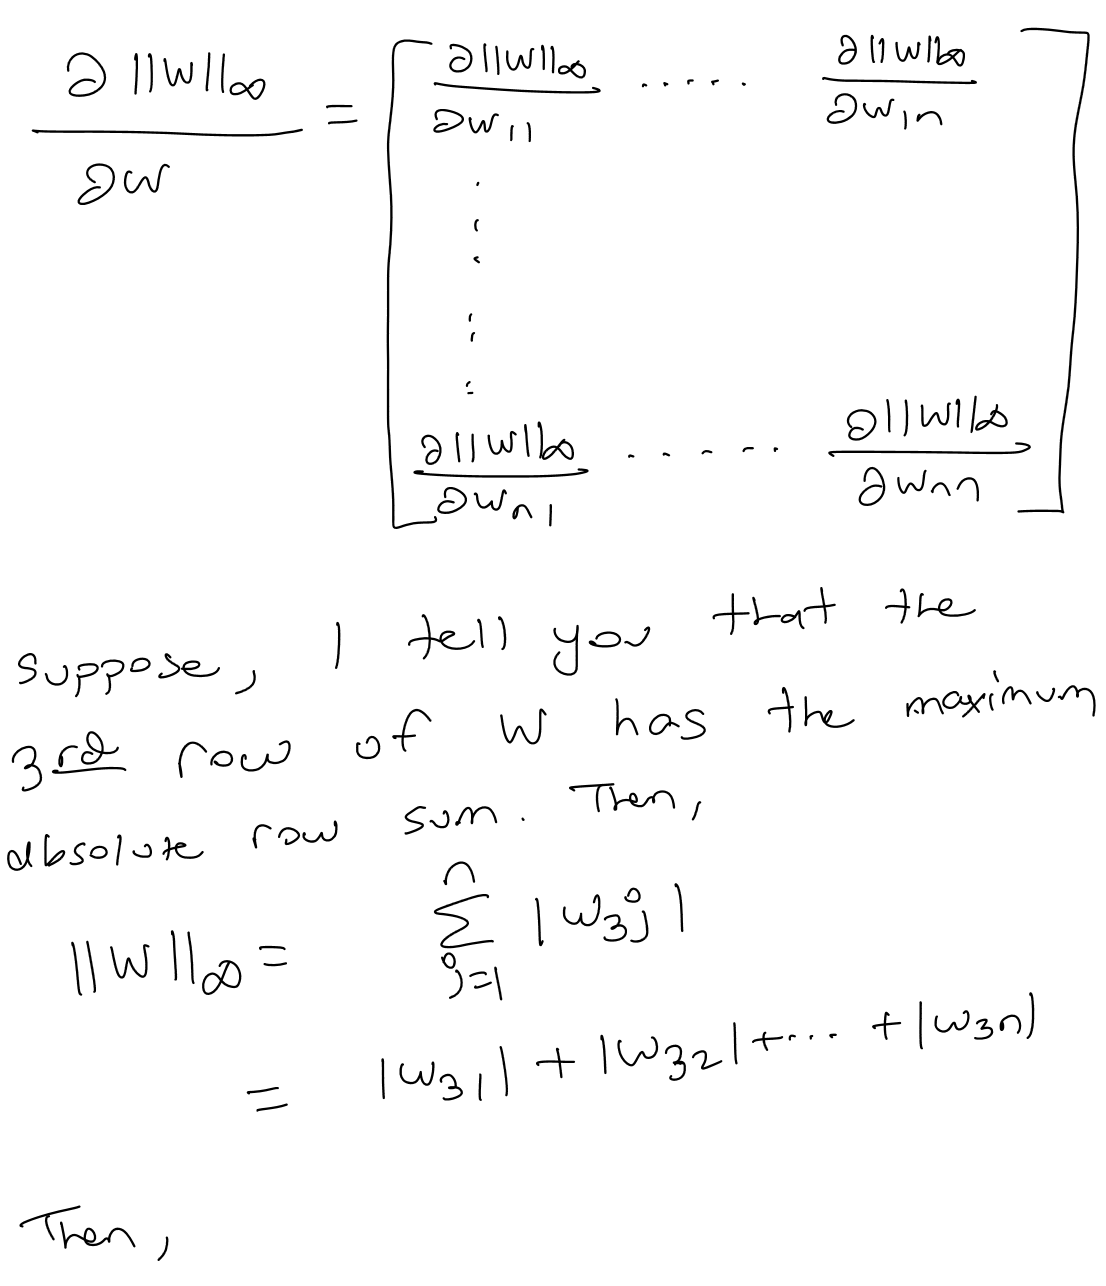 ∂||W||∞ / ∂W = [ ∂||W||∞/∂W11 ..... ∂||W||∞/∂W1n
⋮
∂||W||∞/∂Wn1 ..... ∂||W||∞/∂Wnn ]
Suppose, I tell you that the
3rd row of W has the maximum
absolute row sum. Then,
||W||∞ = ∑_{j=1}^{n} |W3j|
= |W31| + |W32| + ... + |W3n|
Then,